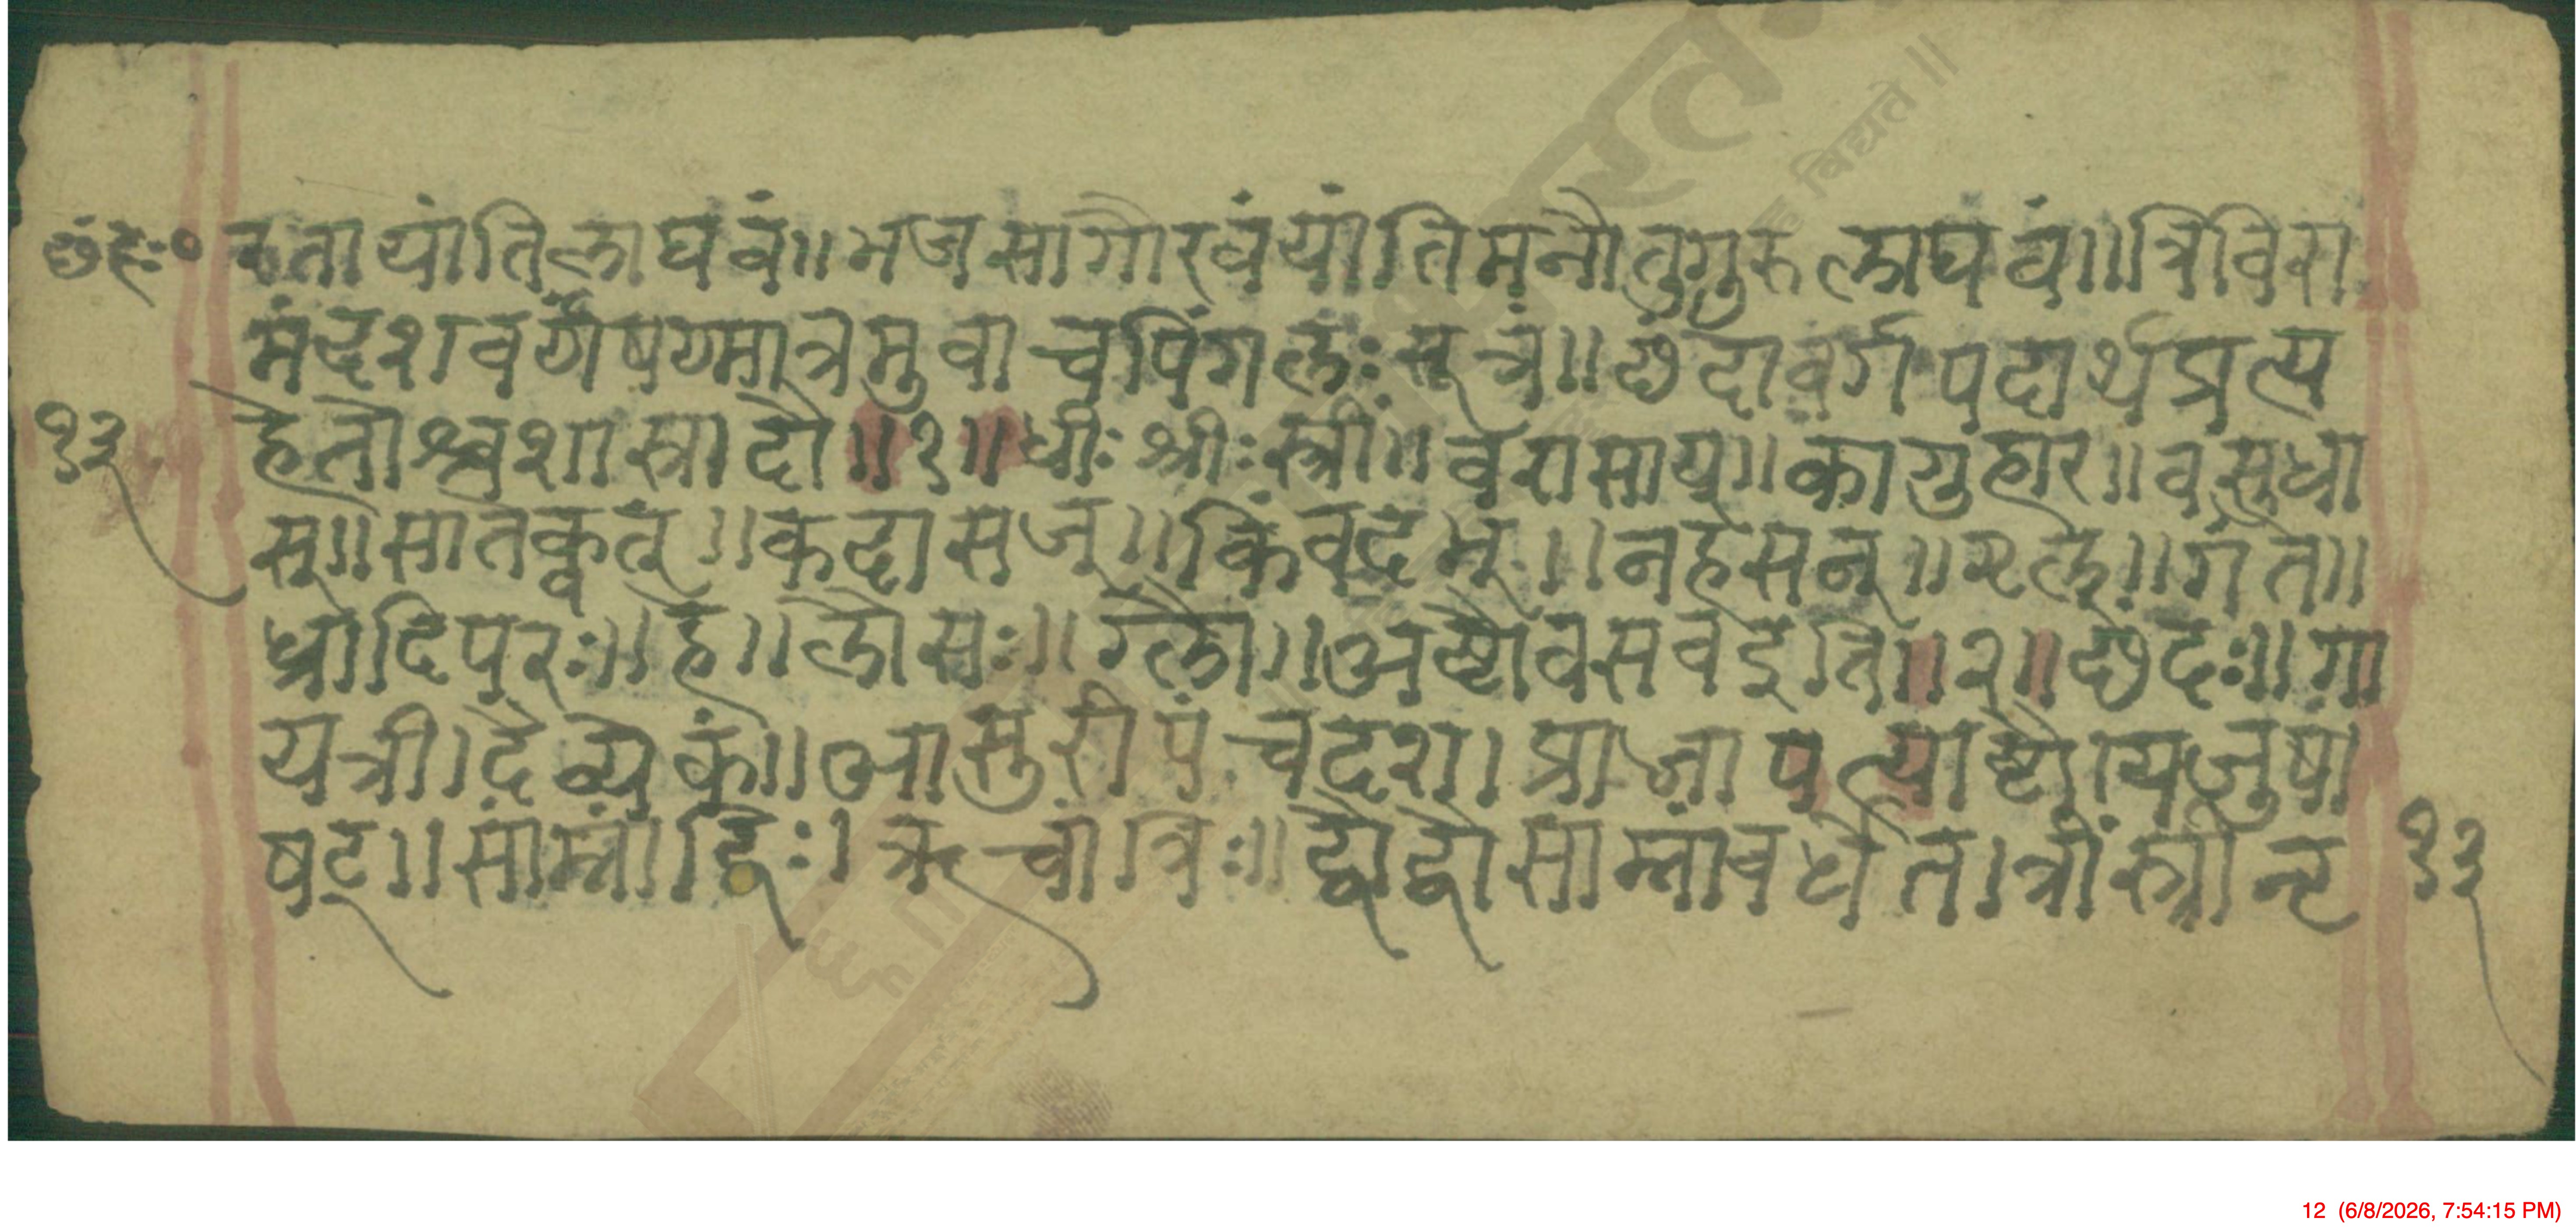 छंदः०
रतायांतिलाघवं॥भजसागौरवंयांतिमनौतुगुरुलाघवं॥त्रिविरा
मंदशवर्णंषण्मात्रमुवाचपिंगलःसूत्रं॥छंदोवर्गपदार्थप्रत्य
१३
हेतोश्चशास्त्रादौ॥१॥धीःश्रीःस्त्रीं॥वरासाय्॥कागुहार॥वसुधा
स्॥सातेक्वत्॥कदासज्॥किंवदभ्॥नहसन्॥२ल्॥गंते॥
ध्रादिपरः॥हे॥लौसः॥ग्लौ॥अष्टौवसवइति॥२॥छंदः॥गा
यत्री।दैव्येकं॥आसुरीपंचदश।प्राजापत्याष्टौ।यजुषां
षट्॥सांम्नांद्विः।ऋचांत्रिः॥द्वौद्वौसाम्नांवर्धेत।त्रींस्त्रीनृ
१३
12 (6/8/2026, 7:54:15 PM)